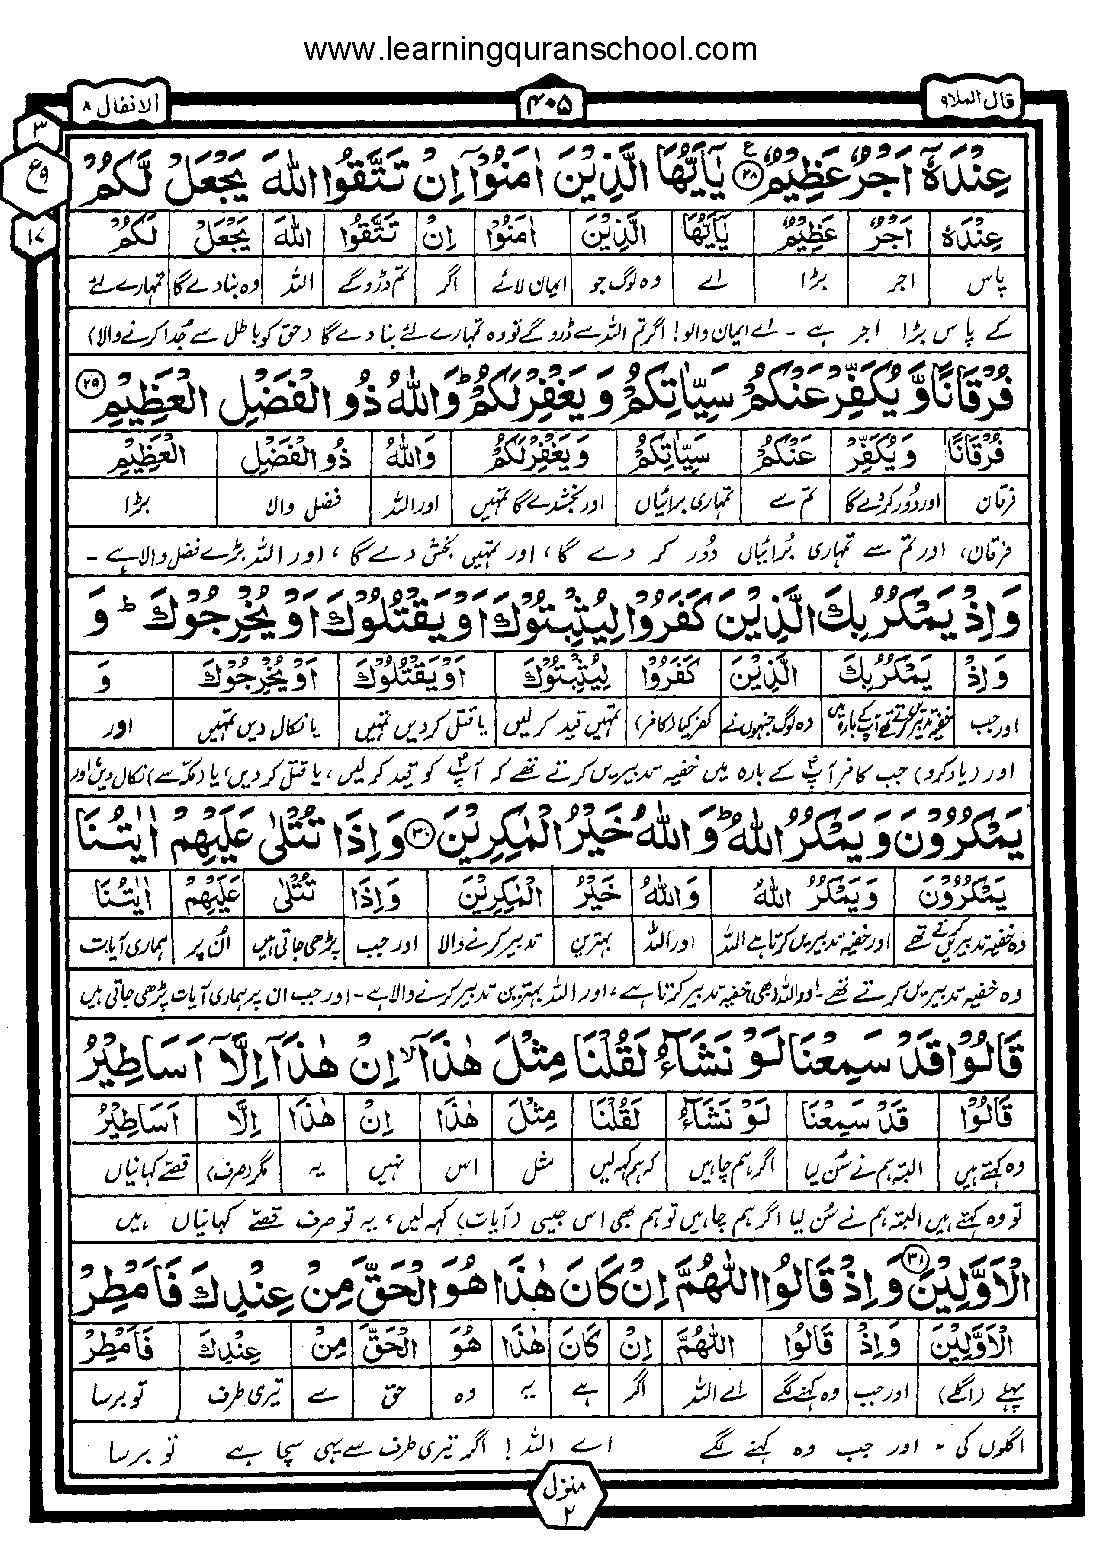 www.learningquranschool.com
قال الملا ۹
۴۰۵
الانفال ۸
۳
ع ۹
۱۷
عِنْدَهٗۤ اَجْرٌ عَظِيْمٌ ۲۸ يٰۤاَيُّهَا الَّذِيْنَ اٰمَنُوْۤا اِنْ تَتَّقُوا اللّٰهَ يَجْعَلْ لَّكُمْ
عِنْدَهٗ اَجْرٌ عَظِيْمٌ يٰۤاَيُّهَا الَّذِيْنَ اٰمَنُوْا اِنْ تَتَّقُوا اللّٰهَ يَجْعَلْ لَّكُمْ
پاس اجر بڑا اے وہ لوگ جو ایمان لائے اگر تم ڈروگے اللہ وہ بنادے گا تمہارے لئے
کے پاس بڑا اجر ہے ۔ اے ایمان والو! اگر تم اللہ سے ڈروگے تو وہ تمہارے لئے بنا دے گا (حق کو باطل سے جُدا کرنے والا)
فُرْقَانًا وَّيُكَفِّرْ عَنْكُمْ سَيِّاٰتِكُمْ وَيَغْفِرْ لَكُمْ ؕ وَاللّٰهُ ذُو الْفَضْلِ الْعَظِيْمِ ۲۹
فُرْقَانًا وَيُكَفِّرْ عَنْكُمْ سَيِّاٰتِكُمْ وَيَغْفِرْلَكُمْ وَاللّٰهُ ذُو الْفَضْلِ الْعَظِيْمِ
فرقان اور دُور کردے گا تم سے تمہاری برائیاں اور بخشدے گا تمہیں اور اللہ فضل والا بڑا
فرقان، اور تم سے تمہاری بُرائیاں دُور کر دے گا، اور تمہیں بخش دے گا، اور اللہ بڑے فضل والا ہے ۔
وَاِذْ يَمْكُرُ بِكَ الَّذِيْنَ كَفَرُوْا لِيُثْبِتُوْكَ اَوْ يَقْتُلُوْكَ اَوْ يُخْرِجُوْكَ ؕ وَ
وَاِذْ يَمْكُرُ بِكَ الَّذِيْنَ كَفَرُوْا لِيُثْبِتُوْكَ اَوْ يَقْتُلُوْكَ اَوْ يُخْرِجُوْكَ وَ
اور جب خفیہ تدبیریں کرتے تھے آپ کے بارہ میں وہ لوگ جنہوں نے کفر کیا (کافر) تمہیں قید کرلیں یا قتل کردیں تمہیں یا نکال دیں تمہیں اور
اور (یاد کرو) جب کافر آپ کے بارہ میں خفیہ تدبیریں کرتے تھے کہ آپ کو قید کرلیں، یا قتل کردیں، یا (مکہ سے) نکال دیں، اور
يَمْكُرُوْنَ وَيَمْكُرُ اللّٰهُ ؕ وَاللّٰهُ خَيْرُ الْمٰكِرِيْنَ ۳۰ وَاِذَا تُتْلٰى عَلَيْهِمْ اٰيٰتُنَا
يَمْكُرُوْنَ وَيَمْكُرُ اللّٰهُ وَاللّٰهُ خَيْرُ الْمٰكِرِيْنَ وَاِذَا تُتْلٰى عَلَيْهِمْ اٰيٰتُنَا
وہ خفیہ تدبیریں کرتے تھے اور خفیہ تدبیریں کرتا ہے اللہ اور اللہ بہترین تدبیر کرنے والا اور جب پڑھی جاتی ہیں اُن پر ہماری آیات
وہ خفیہ تدبیریں کرتے تھے ۔ اور اللہ بھی خفیہ تدبیر کرتا ہے، اور اللہ بہترین تدبیر کرنے والا ہے ۔ اور جب ان پر ہماری آیات پڑھی جاتی ہیں
قَالُوْا قَدْ سَمِعْنَا لَوْ نَشَآءُ لَقُلْنَا مِثْلَ هٰذَاۤ ۙ اِنْ هٰذَاۤ اِلَّاۤ اَسَاطِيْرُ
قَالُوْا قَدْ سَمِعْنَا لَوْ نَشَآءُ لَقُلْنَا مِثْلَ هٰذَا اِنْ هٰذَا اِلَّا اَسَاطِيْرُ
وہ کہتے ہیں البتہ ہم نے سُن لیا اگر ہم چاہیں کہ ہم کہہ لیں مثل اس نہیں یہ مگر (صرف) قصے کہانیاں
تو وہ کہتے ہیں البتہ ہم نے سُن لیا اگر ہم چاہیں تو ہم بھی اس جیسی (آیات) کہہ لیں، یہ تو صرف قصے کہانیاں ہیں
الْاَوَّلِيْنَ ۳۱ وَاِذْ قَالُوا اللّٰهُمَّ اِنْ كَانَ هٰذَا هُوَ الْحَقَّ مِنْ عِنْدِكَ فَاَمْطِرْ
الْاَوَّلِيْنَ وَاِذْ قَالُوْا اللّٰهُمَّ اِنْ كَانَ هٰذَا هُوَ الْحَقَّ مِنْ عِنْدِكَ فَاَمْطِرْ
پہلے (اگلے) اور جب وہ کہنے لگے اے اللہ اگر ہے یہ وہ حق سے تیری طرف تو برسا
اگلوں کی ۔ اور جب وہ کہنے لگے اے اللہ! اگر تیری طرف سے یہی سچا ہے تو برسا
منزل
۲